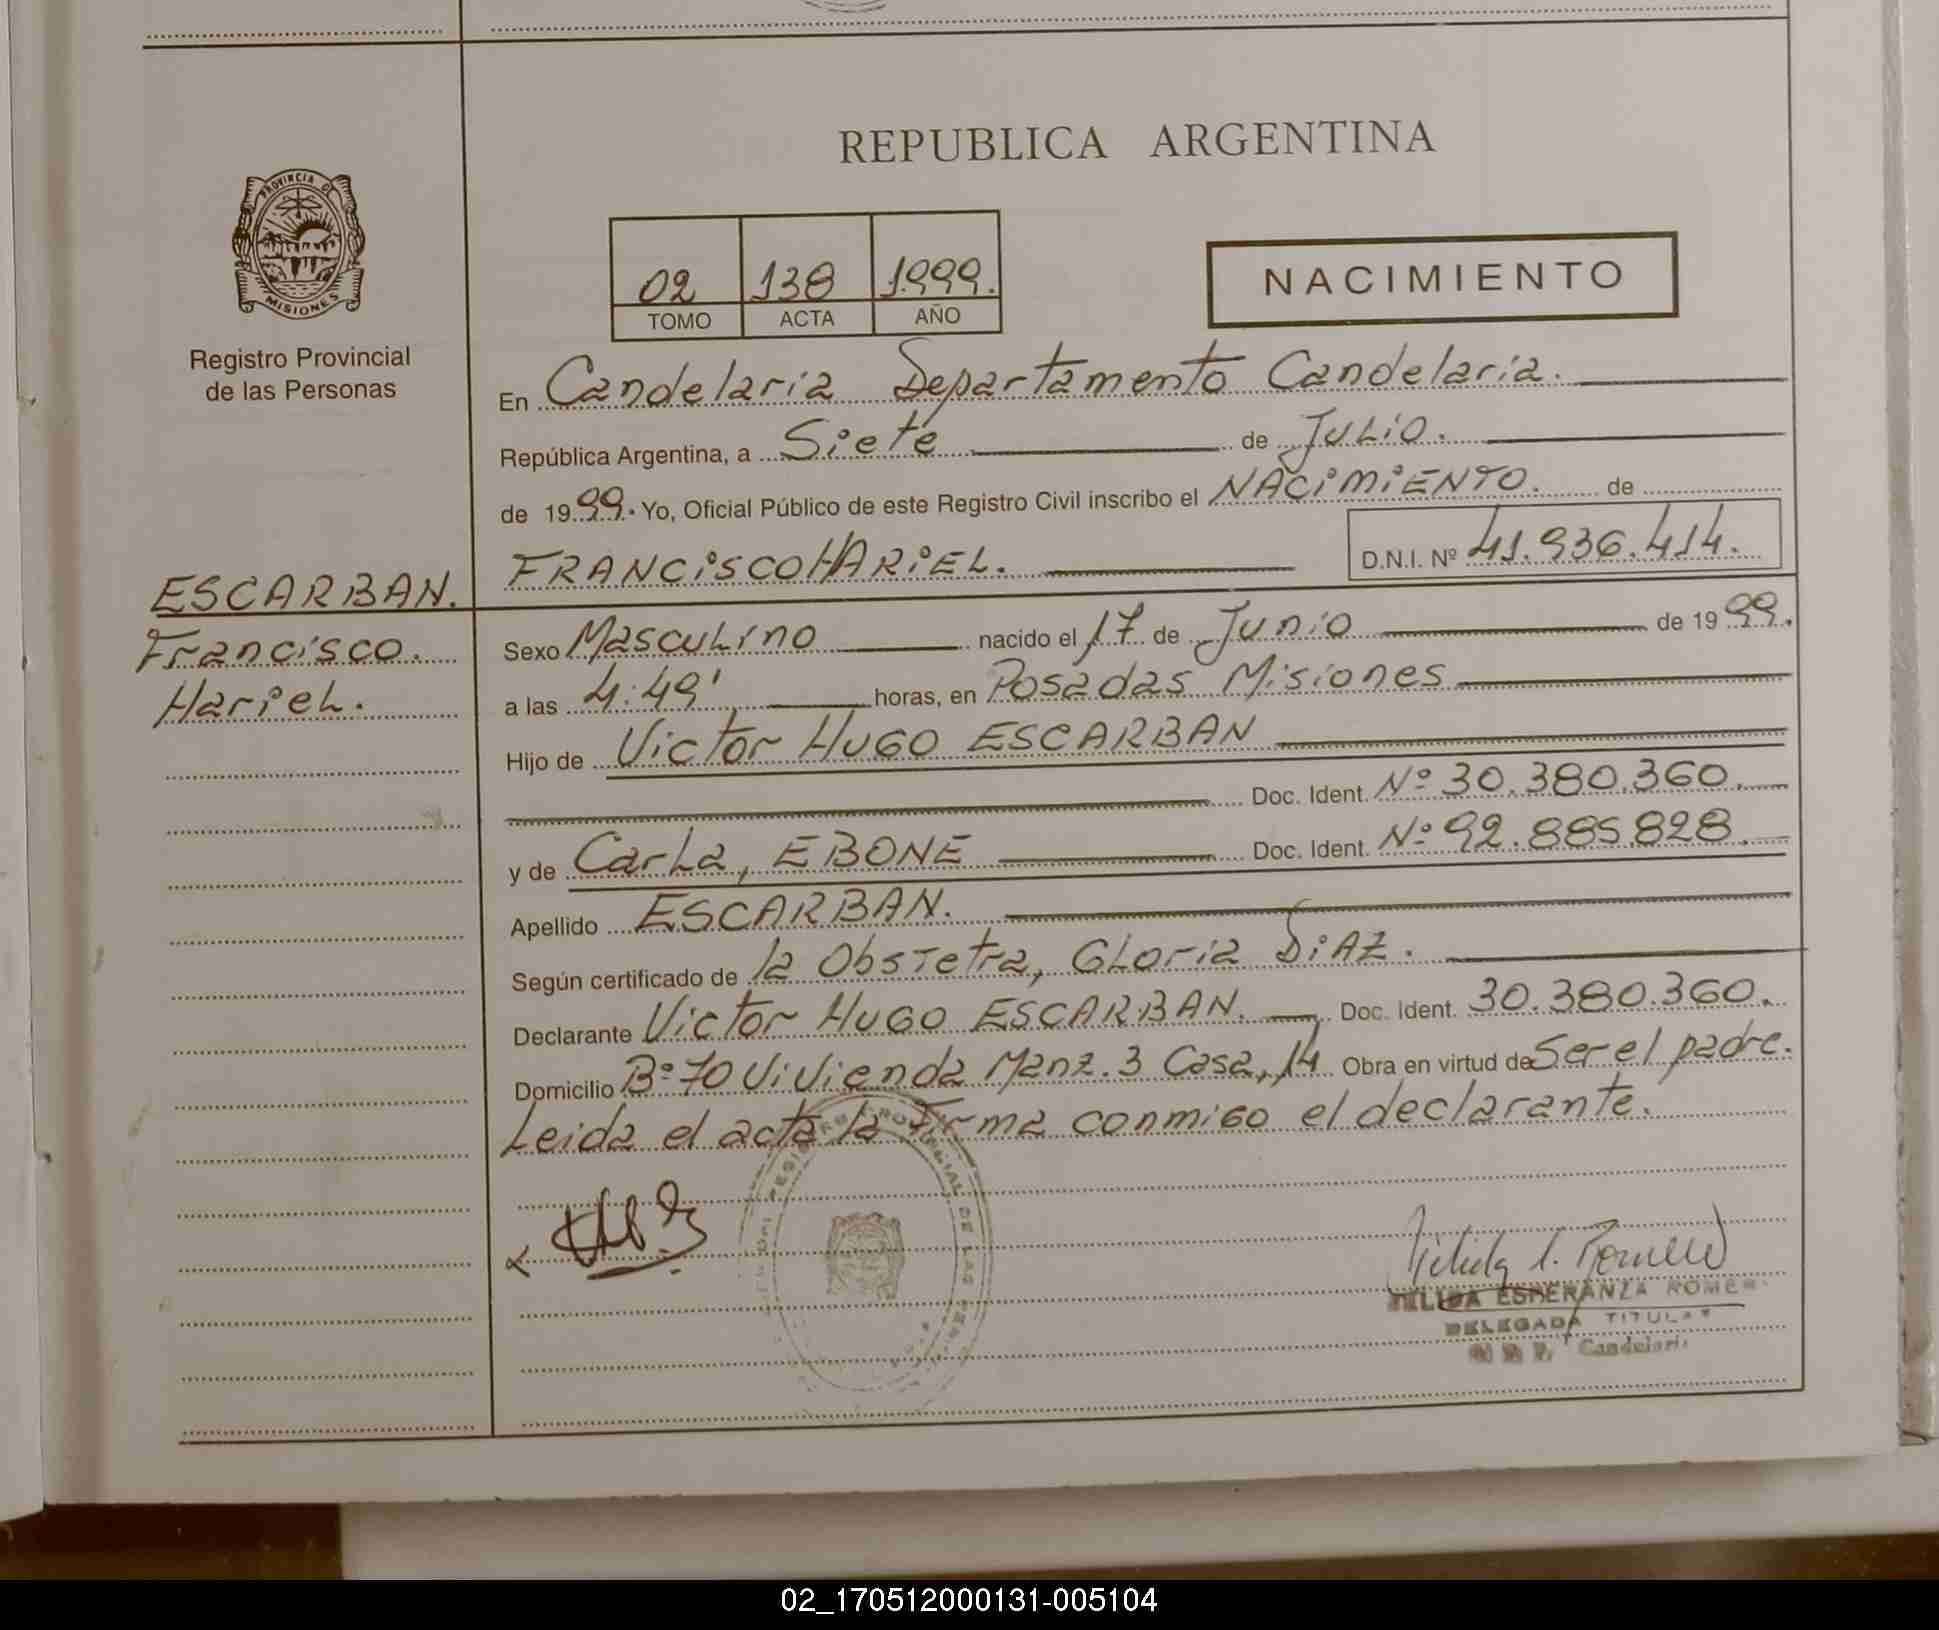 REPUBLICA ARGENTINA
PROVINCIA DE
MISIONES
Registro Provincial
de las Personas
02 138 1.999.
TOMO ACTA AÑO
NACIMIENTO
En Candelaria Departamento Candelaria.
República Argentina, a Siete de Julio.
de 1999. Yo, Oficial Público de este Registro Civil inscribo el NACIMIENTO. de
FRANCISCO HARIEL. D.N.I. Nº 41.936.414.
ESCARBAN.
Francisco.
Hariel.
Sexo Masculino nacido el 17 de Junio de 1999.
a las 4:49' horas, en Posadas Misiones
Hijo de Victor Hugo ESCARBAN
Doc. Ident. Nº 30.380.360.
y de Carla, EBONE Doc. Ident. Nº 92.885.828.
Apellido ESCARBAN.
Según certificado de la Obstetra, Gloria DiAZ.
Declarante Victor Hugo ESCARBAN. Doc. Ident. 30.380.360.
Domicilio Bº 70 Vivienda Manz. 3 Casa, 14 Obra en virtud de Ser el padre.
Leida el acta la Firma conmigo el declarante.
REGISTRO PROVINCIAL DE LAS
ESPERANZA ROMERO
DELEGADA TITULAR
Candelaria
02_170512000131-005104